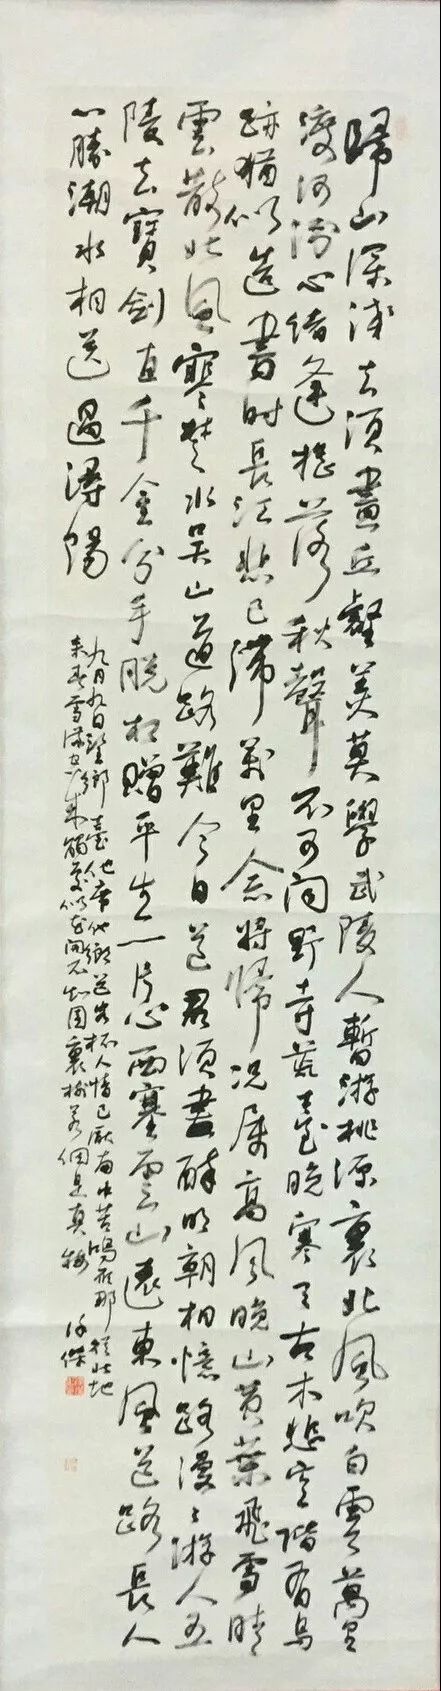 歸山深淺去須盡丘壑美莫學武陵人暫游桃源裏北風吹白雲萬里
渡河汾心緒逢搖落秋聲不可聞野寺荒臺晚寒天古木悲空階有鳥
跡猶似造書時長江悲已滯萬里念將歸況屬高風晚山黃葉飛雪晴
雲散北風寒楚水吳山道路難今日送君須盡醉明朝相憶路漫〻游人五
陵去寶劍直千金分手脫相贈平生一片心西塞雲山遠東風道路長人
心勝潮水相送過潯陽
九月九日望鄉臺他席他鄉送客杯人情已厭南中苦鴻雁那從北地
來春雪滿空來觸處似花開不知園裏樹若個是真梅